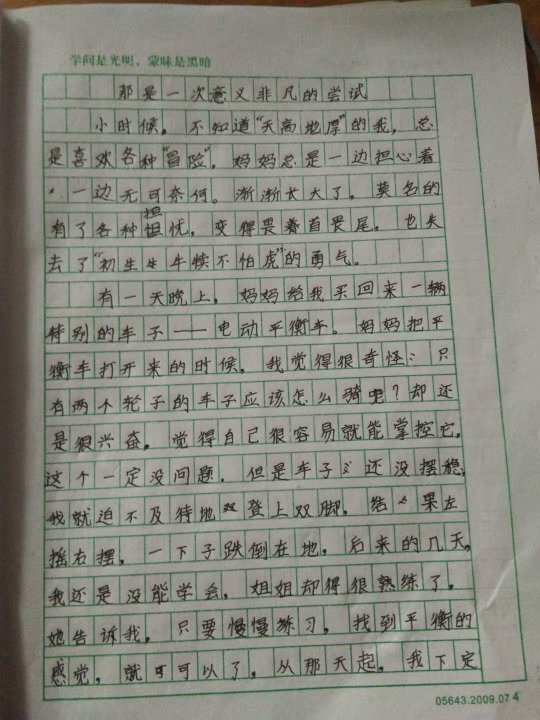 学问是光明,蒙昧是黑暗
那是一次意义非凡的尝试
小时候,不知道“天高地厚”的我,总
是喜欢各种“冒险”,妈妈总是一边担心着
,一边无可奈何。渐渐长大了,莫名的
有了各种担忧,变得畏着首畏尾,也失
去了“初生牛犊不怕虎”的勇气。
有一天晚上,妈妈给我买回来一辆
特别的车子——电动平衡车。妈妈把平
衡车打开来的时候,我觉得很奇怪:只
有两个轮子的车子应该怎么骑呢?却还
是很兴奋,觉得自己很容易就能掌控它,
这个一定没问题。但是车子还没摆稳,
我就迫不及待地登上双脚,结果左
摇右摆,一下子跌倒在地,后来的几天,
我还是没能学会,姐姐却得很熟练了,
她告诉我,只要慢慢练习,找到平衡的
感觉,就可可以了,从那天起,我下定
05643.2009.07 4